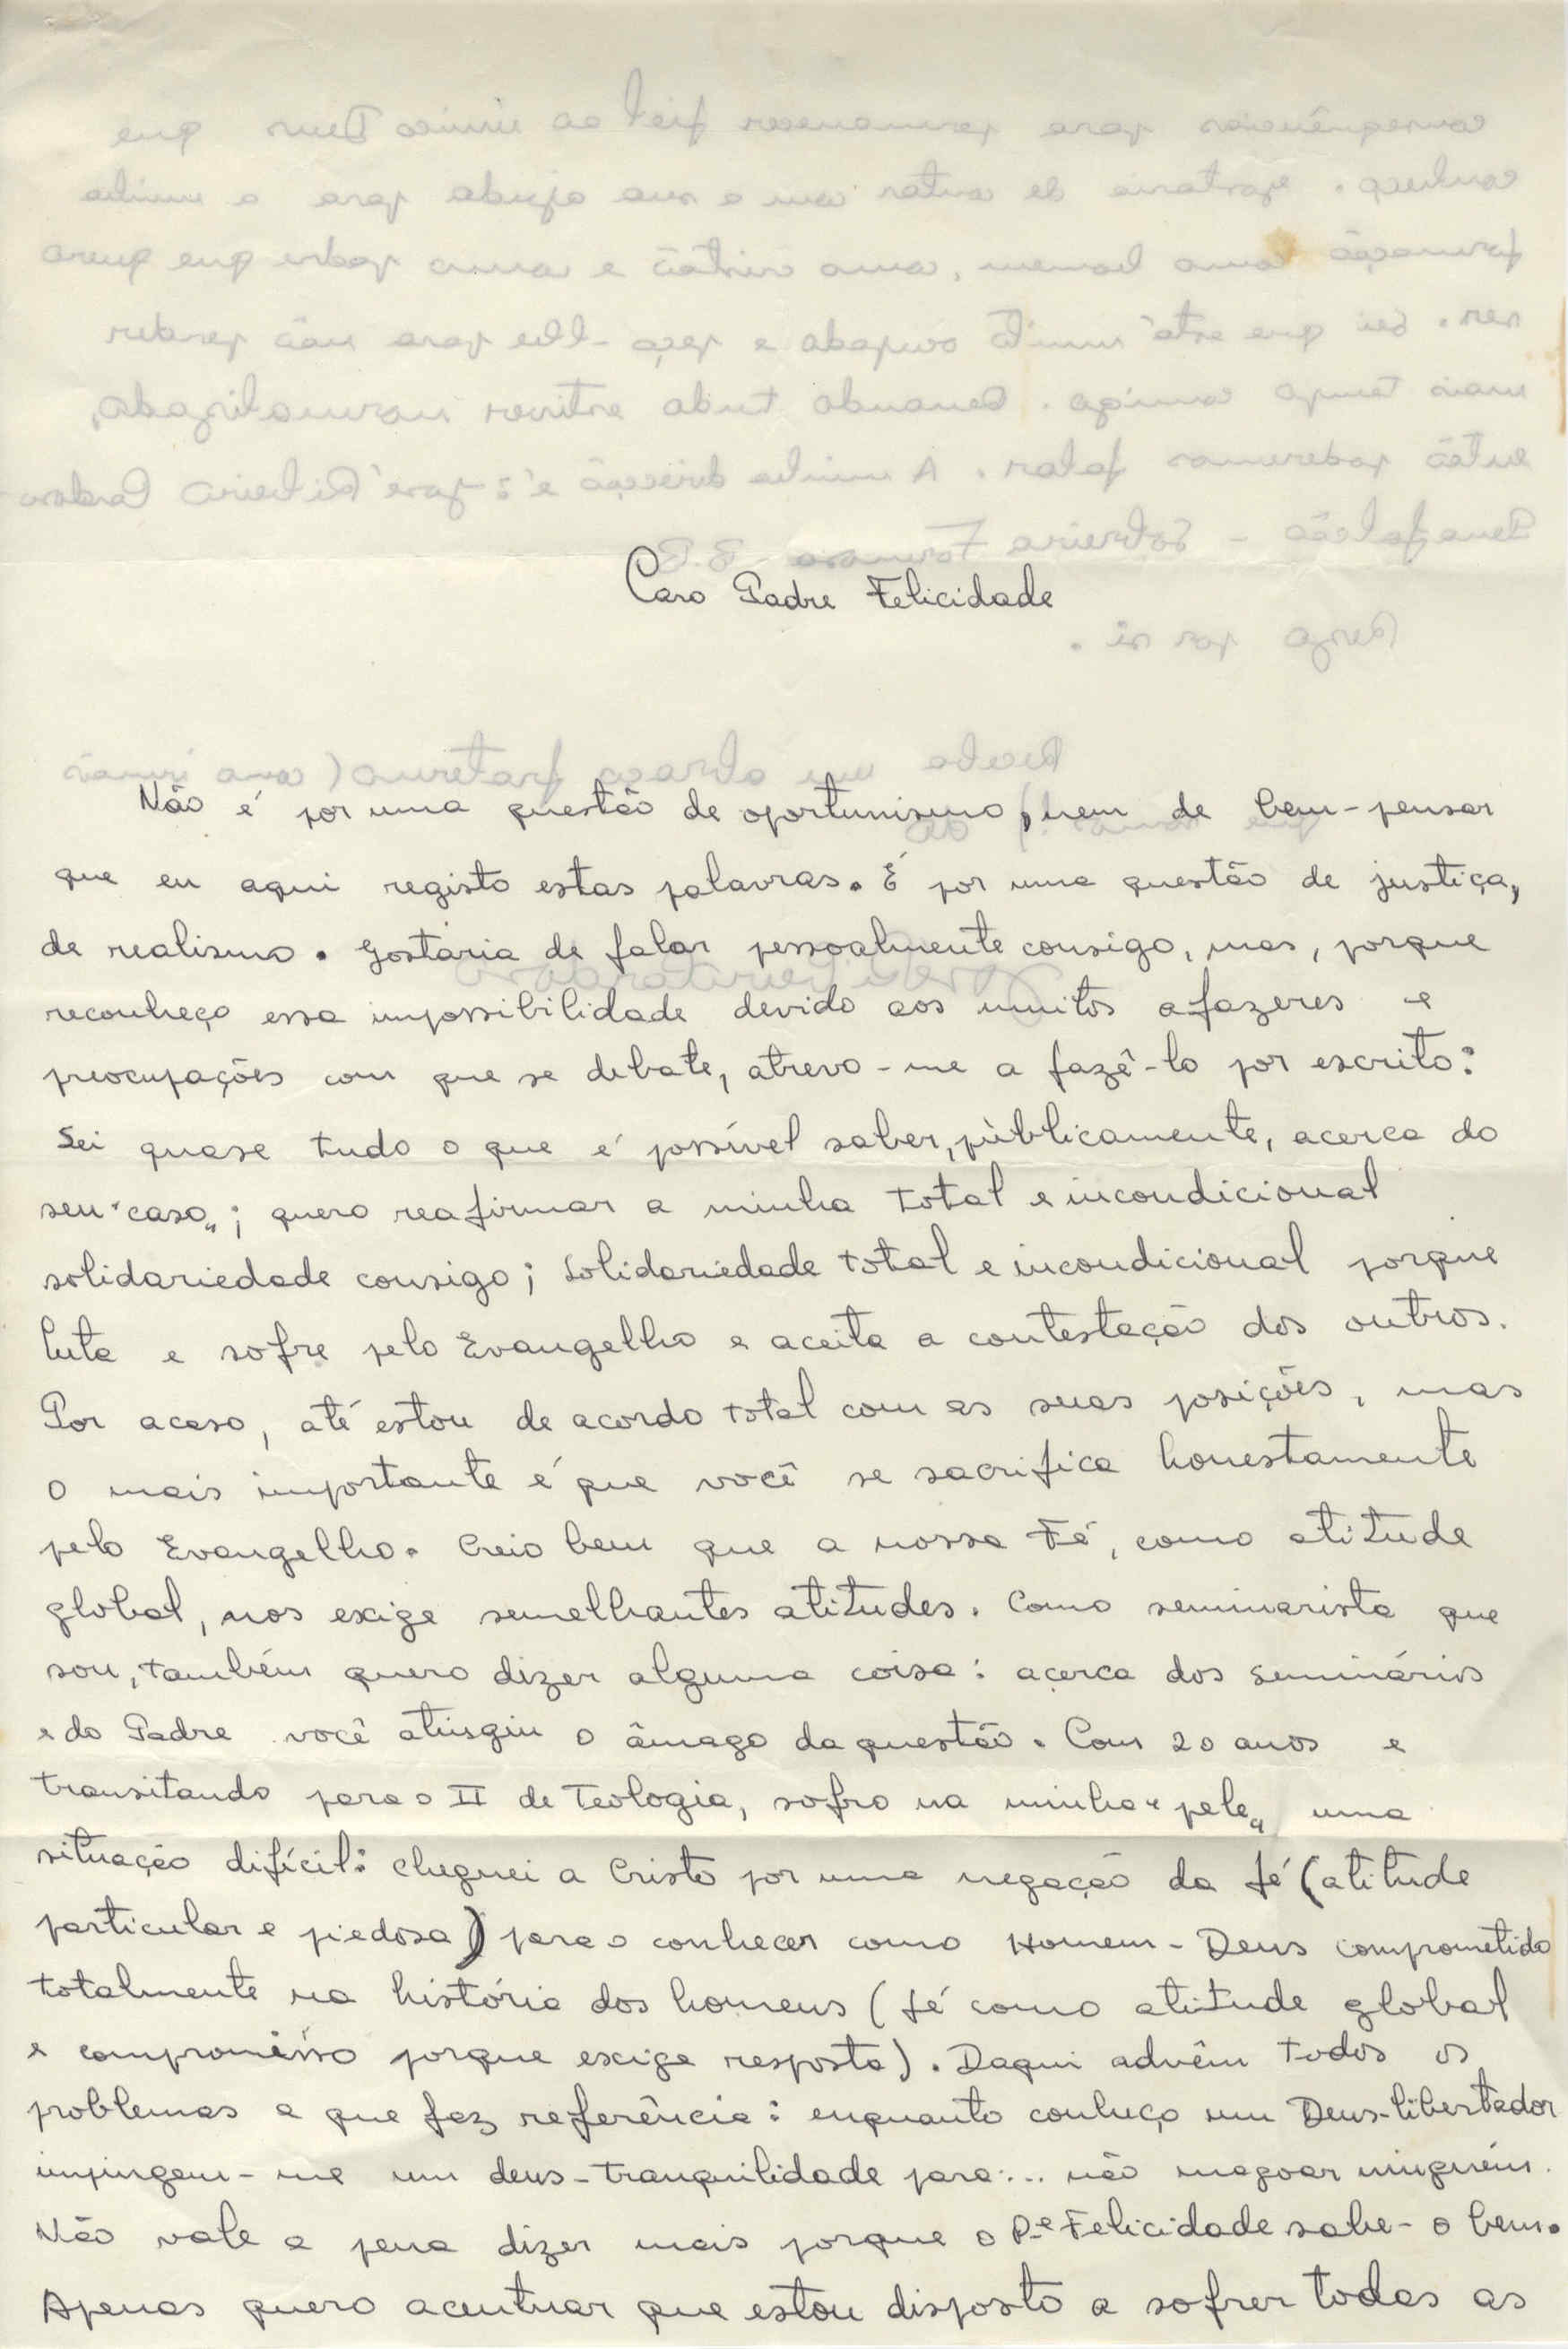 Caro Padre Felicidade
Não é por uma questão de oportunismo, nem de bem-pensar
que eu aqui registo estas palavras. É por uma questão de justiça,
de realismo. Gostaria de falar pessoalmente consigo, mas, porque
reconheço essa impossibilidade devido aos muitos afazeres e
preocupações com que se debate, atrevo-me a fazê-lo por escrito:
Sei quase tudo o que é possível saber, pùblicamente, acerca do
seu "caso"; quero reafirmar a minha total e incondicional
solidariedade consigo; solidariedade total e incondicional porque
luta e sofre pelo Evangelho e aceita a contestação dos outros.
Por acaso, até estou de acordo total com as suas posições, mas
o mais importante é que você se sacrifica honestamente
pelo Evangelho. Creio bem que a nossa Fé, como atitude
global, nos exige semelhantes atitudes. Como seminarista que
sou, também quero dizer alguma coisa: acerca dos seminários
e do Padre você atingiu o âmago da questão. Com 20 anos e
transitando para o II de Teologia, sofro na minha "pele" uma
situação difícil: cheguei a Cristo por uma negação da fé (atitude
particular e piedosa) para o conhecer como Homem-Deus comprometido
totalmente na história dos homens (fé como atitude global
e compromisso porque exige resposta). Daqui advêm todos os
problemas a que faz referência: enquanto conheço um Deus-libertador
impingem-me um deus-tranquilidade para... não magoar ninguém.
Não vale a pena dizer mais porque o Pe Felicidade sabe-o bem.
Apenas quero acentuar que estou disposto a sofrer todas as